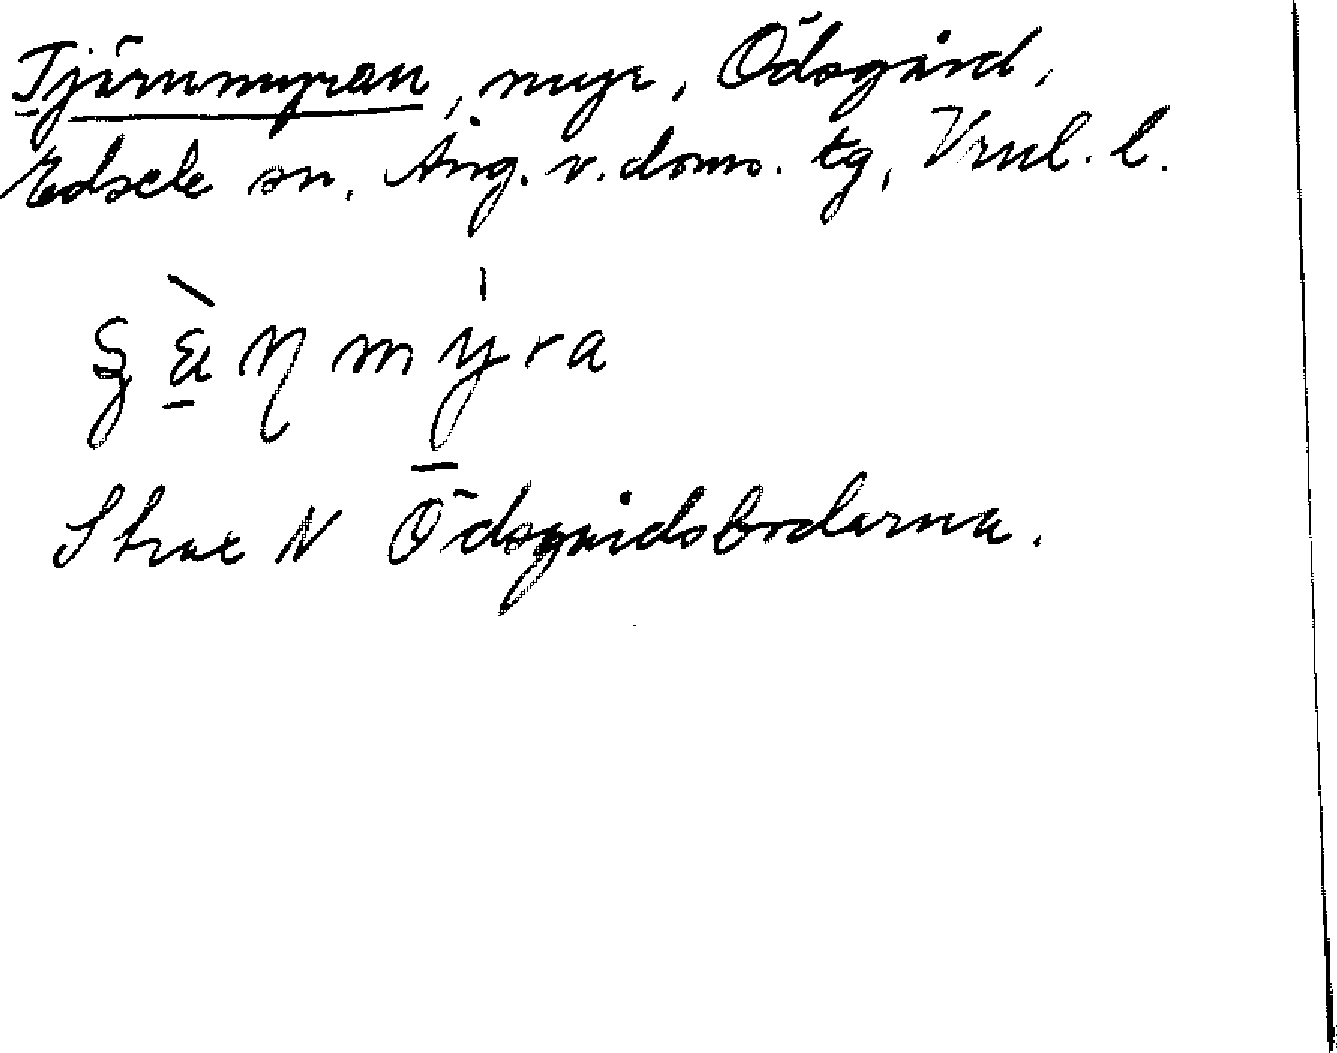 Tjärnmyran, myr, Ödsgård,
Edsele sn. Ång. v. doms. tg, Vrnl. l.
Strax N Ödsgårdsbodarna.